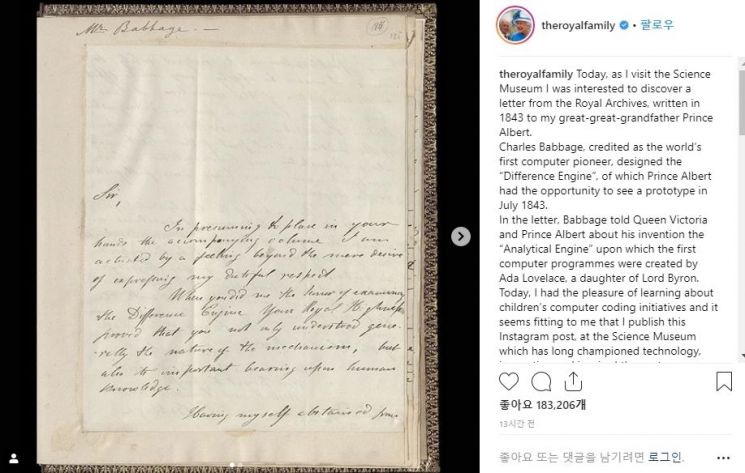 Mr Babbage. —
Sir,
In presuming to place in your
hands the accompanying volume I am
actuated by a feeling beyond the mere desire
of expressing my dutiful respect
When you did me the honor of examining
the Difference Engine Your Royal Highness
proved that you not only understood gene-
rally the nature of the mechanism, but
also its important bearing upon human
knowledge.
Having myself abstained from
theroyalfamily • 팔로우
theroyalfamily Today, as I visit the Science
Museum I was interested to discover a
letter from the Royal Archives, written in
1843 to my great-great-grandfather Prince
Albert.
Charles Babbage, credited as the world's
first computer pioneer, designed the
“Difference Engine”, of which Prince Albert
had the opportunity to see a prototype in
July 1843.
In the letter, Babbage told Queen Victoria
and Prince Albert about his invention the
“Analytical Engine” upon which the first
computer programmes were created by
Ada Lovelace, a daughter of Lord Byron.
Today, I had the pleasure of learning about
children's computer coding initiatives and it
seems fitting to me that I publish this
Instagram post, at the Science Museum
which has long championed technology,
좋아요 183,206개
13시간 전
좋아요 또는 댓글을 남기려면 로그인.